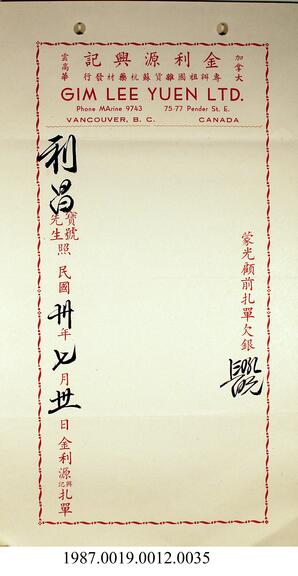 金利源興記
加拿大
雲高華
專辦祖國雜貨蘇杭藥材發行
GIM LEE YUEN LTD.
Phone MArine 9743 75-77 Pender St. E.
VANCOUVER, B. C. CANADA
蒙光顧前扎單欠銀
利昌
寶號
先生
照
民國卅年七月卅日金利源興記扎單
1987.0019.0012.0035